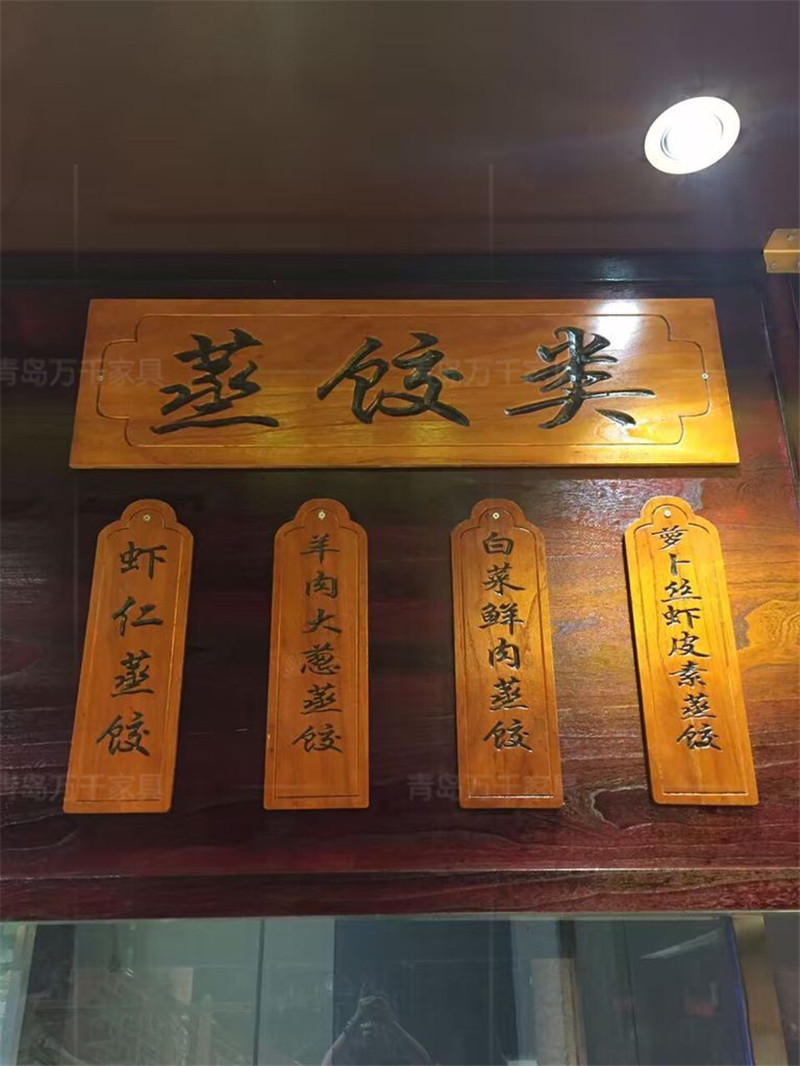 蒸饺类
虾仁蒸饺
羊肉大葱蒸饺
白菜鲜肉蒸饺
萝卜丝虾皮素蒸饺
青岛万千家具
青岛万千家具
青岛万千家具
青岛万千家具